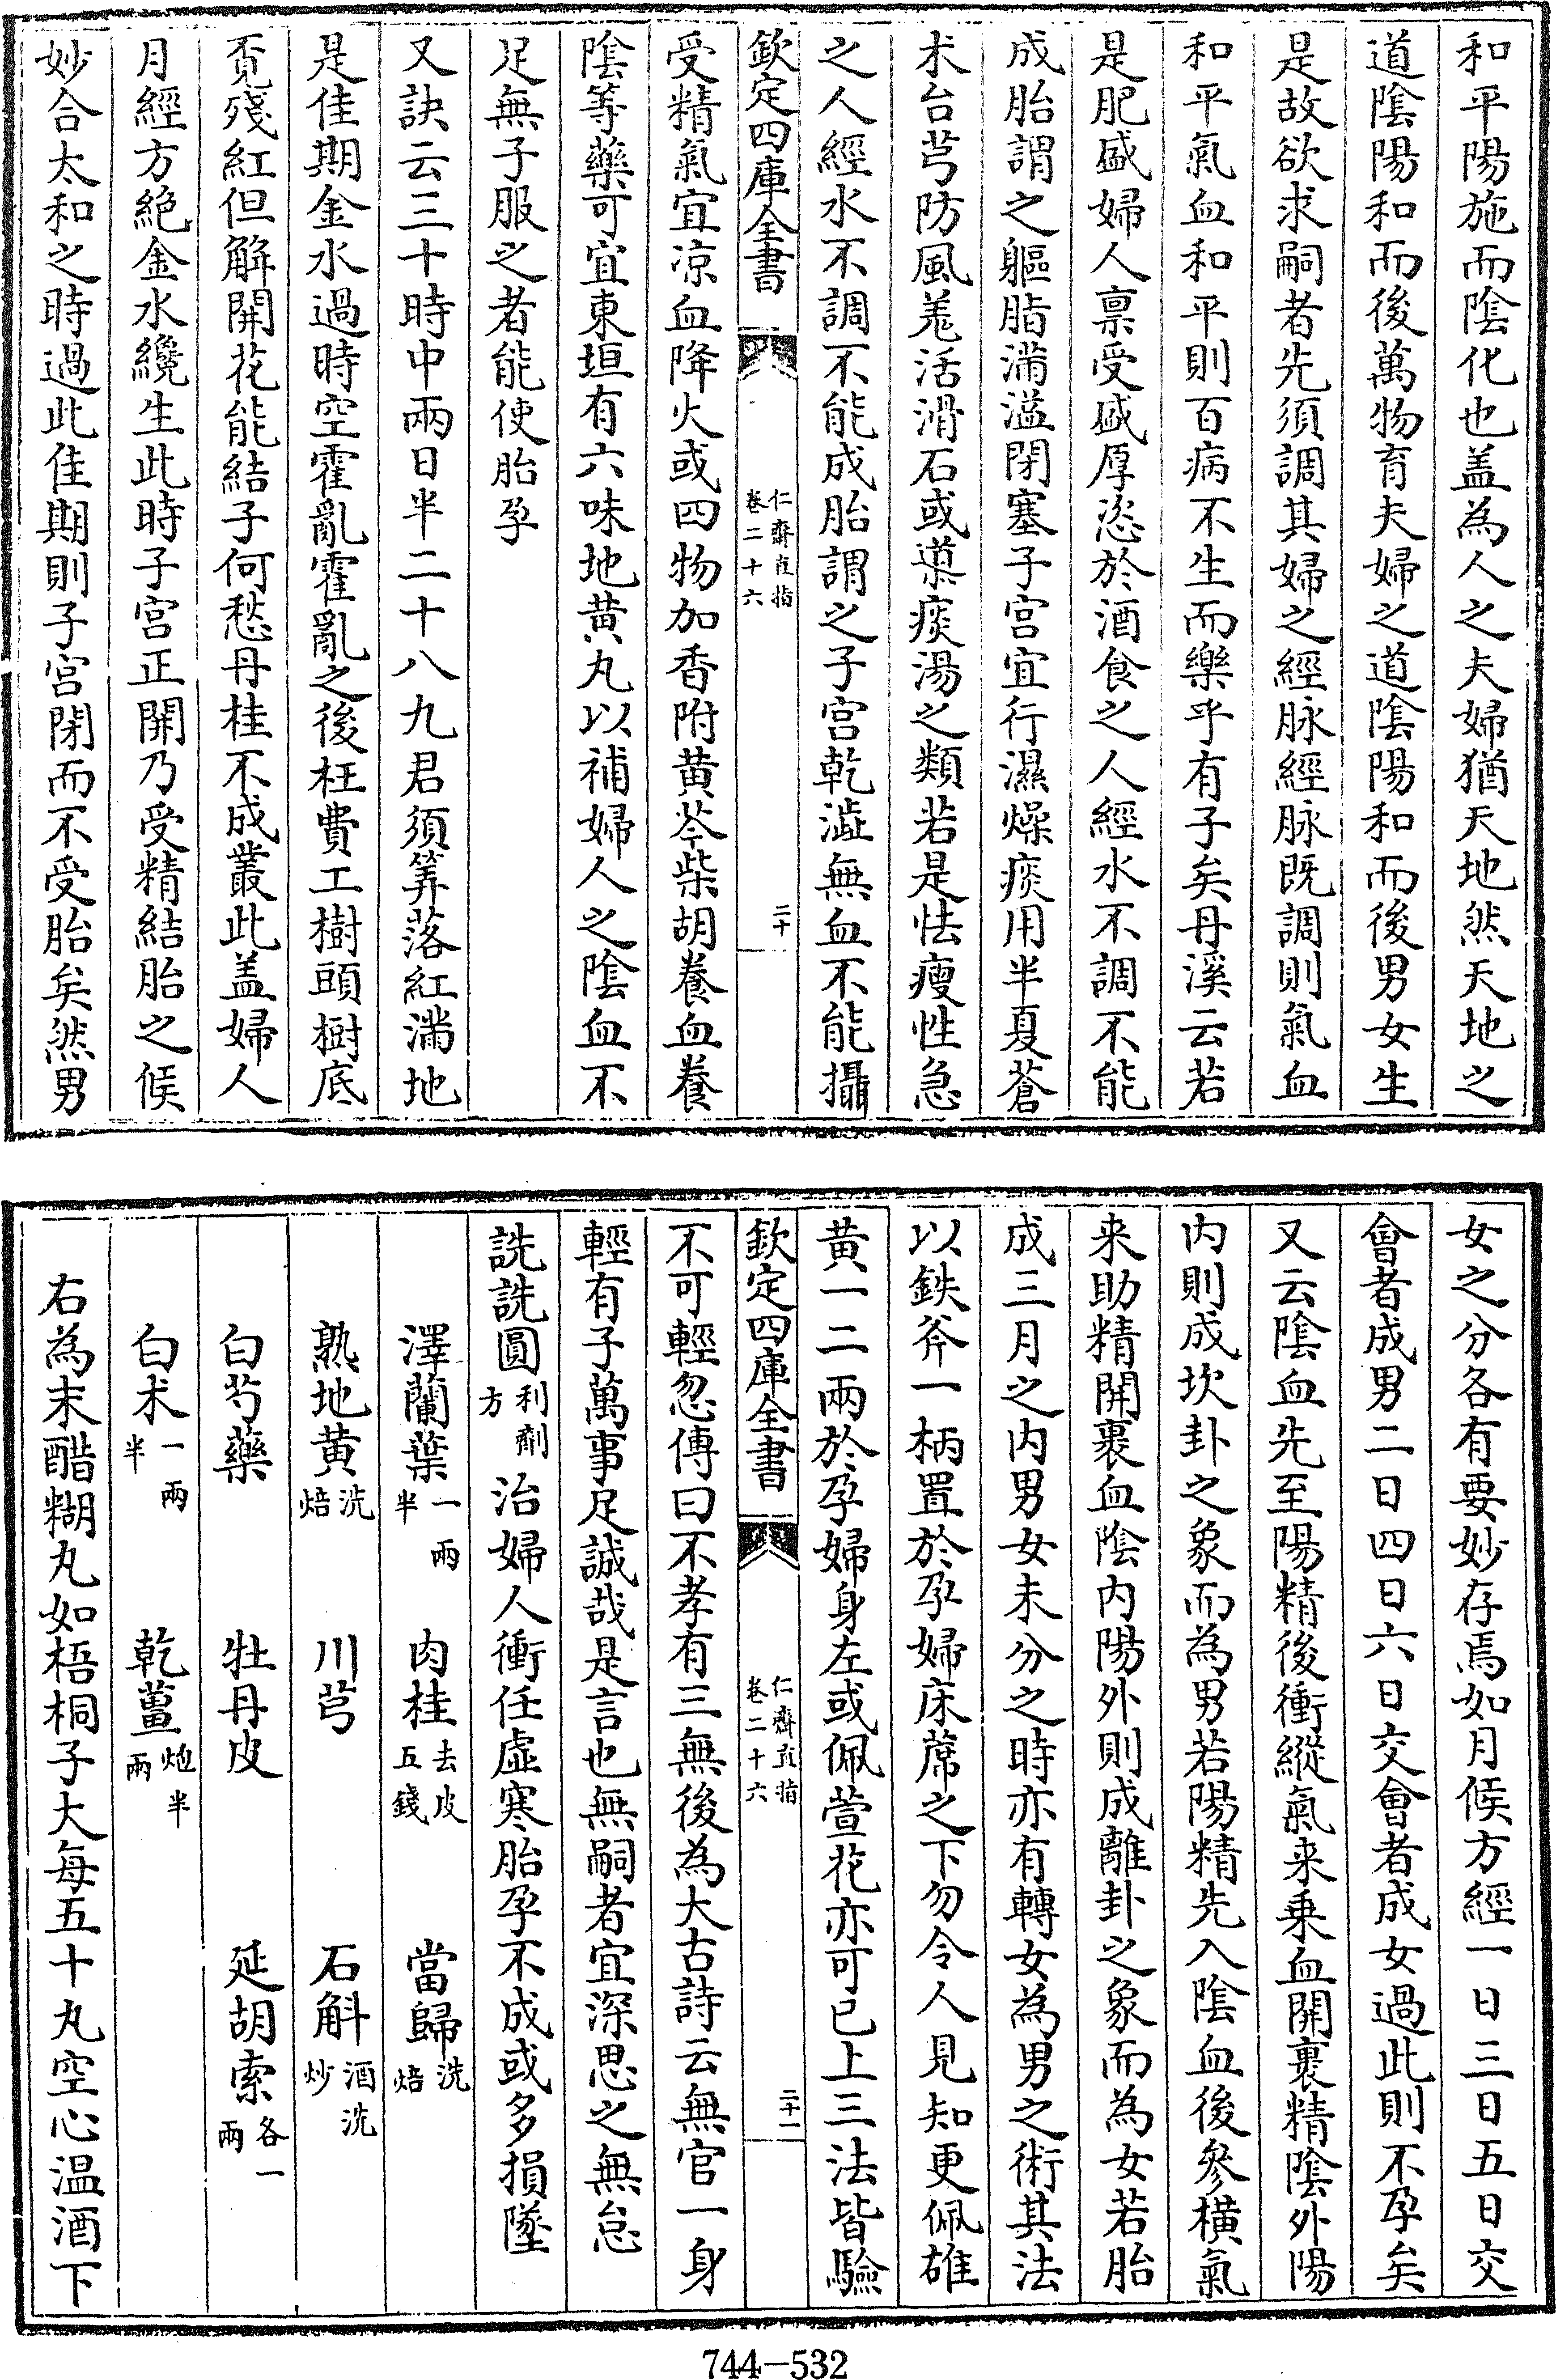 和平陽施而陰化也盖為人之夫婦猶天地然天地之
道陰陽和而後萬物育夫婦之道陰陽和而後男女生
是故欲求嗣者先須調其婦之經脉經脉既調則氣血
和平氣血和平則百病不生而樂乎有子矣丹溪云若
是肥盛婦人禀受盛厚恣於酒食之人經水不調不能
成胎謂之軀脂滿溢閉塞子宮宜行濕燥痰用半夏蒼
术台芎防風羗活滑石或導痰湯之類若是怯瘦性急
之人經水不調不能成胎謂之子宮乾澁無血不能攝
欽定四庫全書
仁齋直指
卷二十六
二十
受精氣宜凉血降火或四物加香附黄芩柴胡養血養
陰等藥可宜東垣有六味地黄丸以補婦人之陰血不
足無子服之者能使胎孕
又訣云三十時中兩日半二十八九君須筭落紅滿地
是佳期金水過時空霍亂霍亂之後枉費工樹頭樹底
覓殘紅但解開花能結子何愁丹桂不成叢此盖婦人
月經方絶金水纔生此時子宮正開乃受精結胎之候
妙合太和之時過此佳期則子宮閉而不受胎矣然男
女之分各有要妙存焉如月候方經一日三日五日交
會者成男二日四日六日交會者成女過此則不孕矣
又云陰血先至陽精後衝縱氣来乗血開裹精陰外陽
内則成坎卦之象而為男若陽精先入陰血後參橫氣
来助精開裹血陰内陽外則成離卦之象而為女若胎
成三月之内男女未分之時亦有轉女為男之術其法
以鉄斧一柄置於孕婦床蓆之下勿令人見知更佩雄
黄一二兩於孕婦身左或佩萱花亦可已上三法皆驗
欽定四庫全書
仁齋直指
卷二十六
二十一
不可輕忽傳曰不孝有三無後為大古詩云無官一身
輕有子萬事足誠哉是言也無嗣者宜深思之無怠
詵詵圓利劑方治婦人衝任虛寒胎孕不成或多損墜
澤蘭葉一兩半 肉桂去皮五錢 當歸洗焙
熟地黄洗焙 川芎 石斛酒洗炒
白芍藥 牡丹皮 延胡索各一兩
白术一兩半 乾薑炮半兩
右為末醋糊丸如梧桐子大每五十丸空心温酒下
744-532